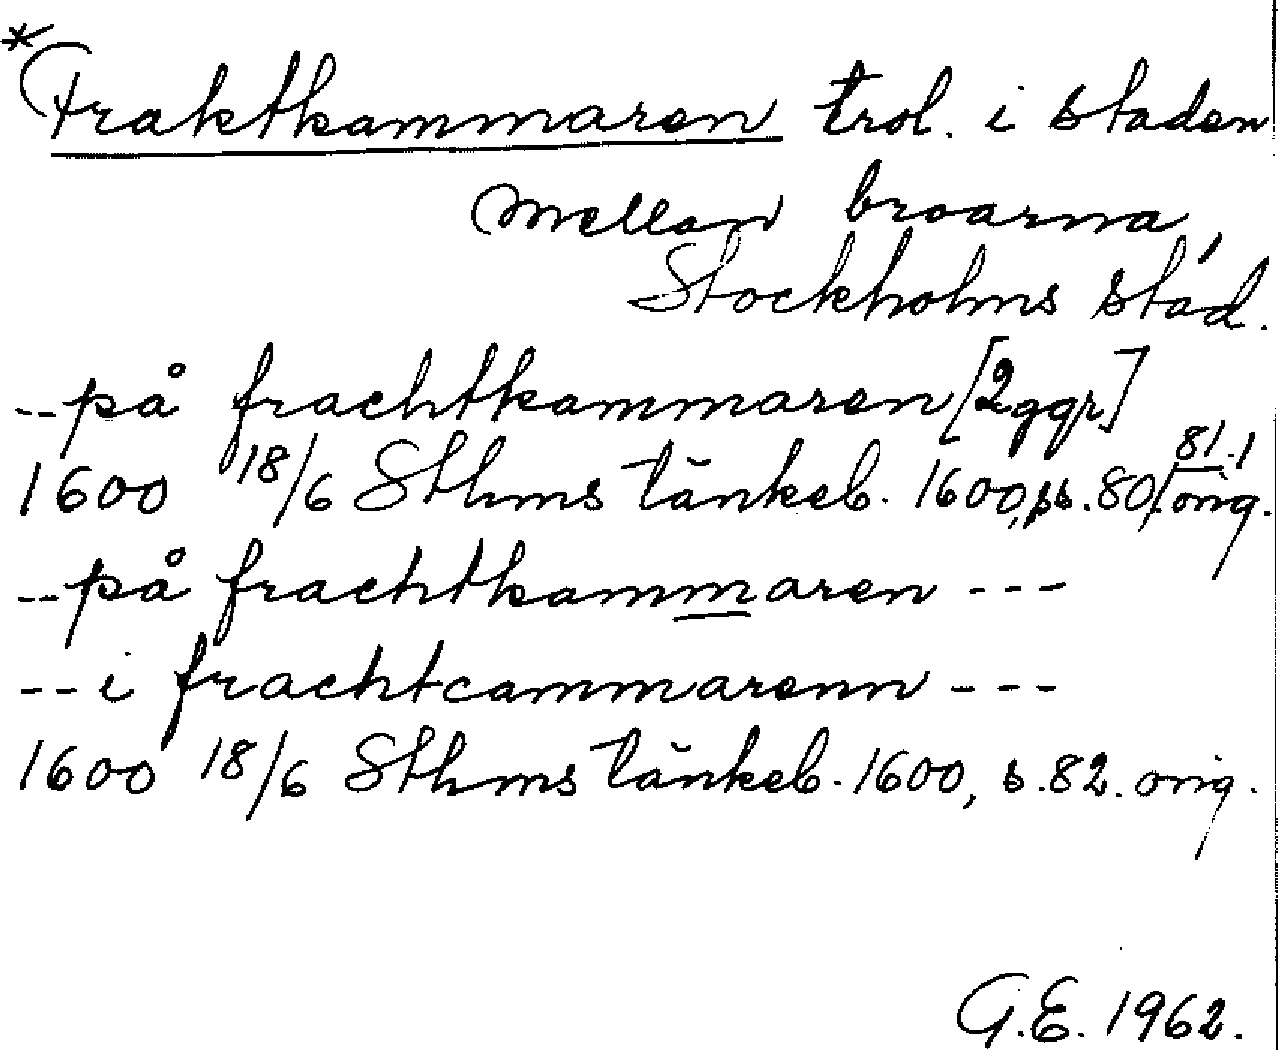 *Fraktkammaren trol. i staden
mellan broarna,
Stockholms stad.
-- på frachtkammaren [2 ggr]
1600 18/6 Sthms tänkeb. 1600, ss. 80, 81.1 orig.
-- på frachtkammaren ---
-- i frachtcammarenn ---
1600 18/6 Sthms tänkeb. 1600, s. 82. orig.
G.E. 1962.